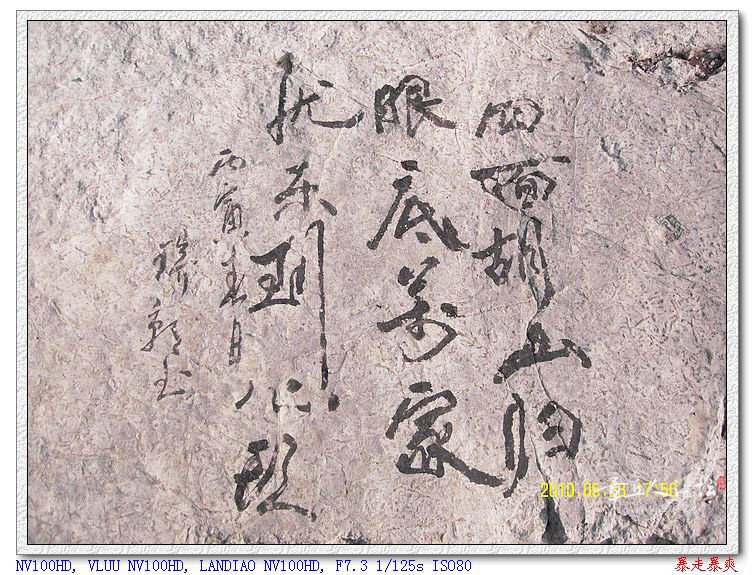 四面胡山归
眼底萬家
忧乐到心頭
丙寅春月
2010.05.23 17:50
NV100HD, VLUU NV100HD, LANDIAO NV100HD, F7.3 1/125s ISO80
暴走暴爽